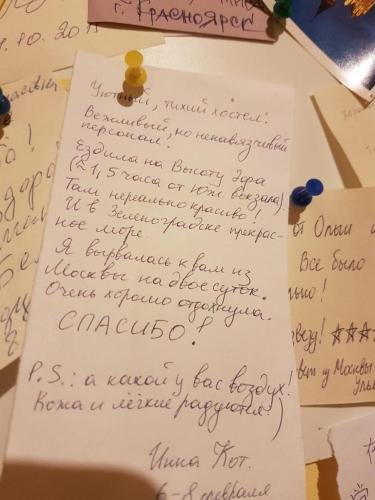 г. Красноярск
.10.2011
Уютный, тихий хостел!
Вежливый, но ненавязчивый
персонал!
Ездила на Высоту Эфа
(≈ 1,5 часа от Юж. вокзала)
Там нереально красиво!
И в Зеленоградске прекрас-
ное море.
Я вырвалась к вам из
Москвы на двое суток.
Очень хорошо отдохнула.
СПАСИБО!
P.S.: а какой у вас воздух!
Кожа и лёгкие радуются :)
Инна Кот.
6-8 февраля
от Ольги и
Всё было
звезд!
ет у Москвы